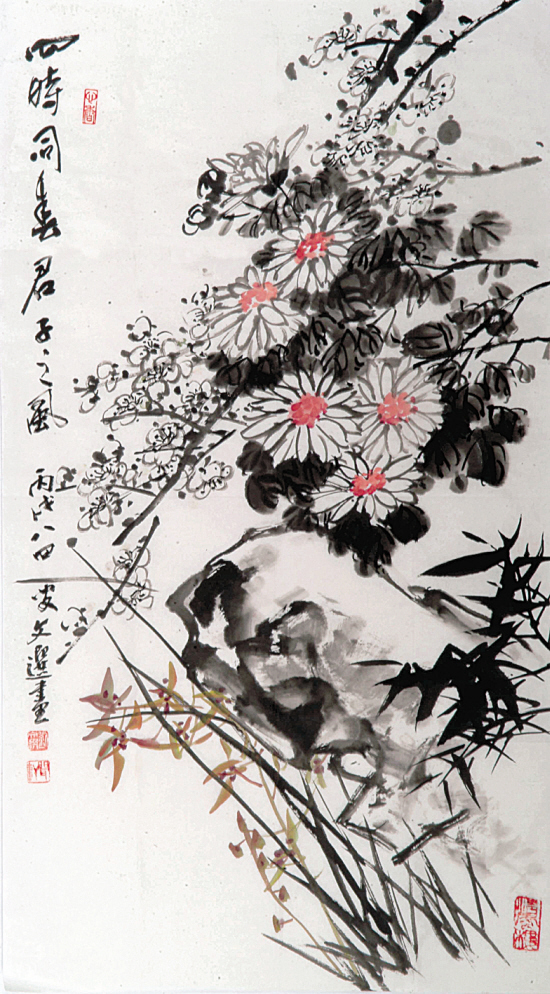 四時同春君子之風 丙戌八月 安文選畫